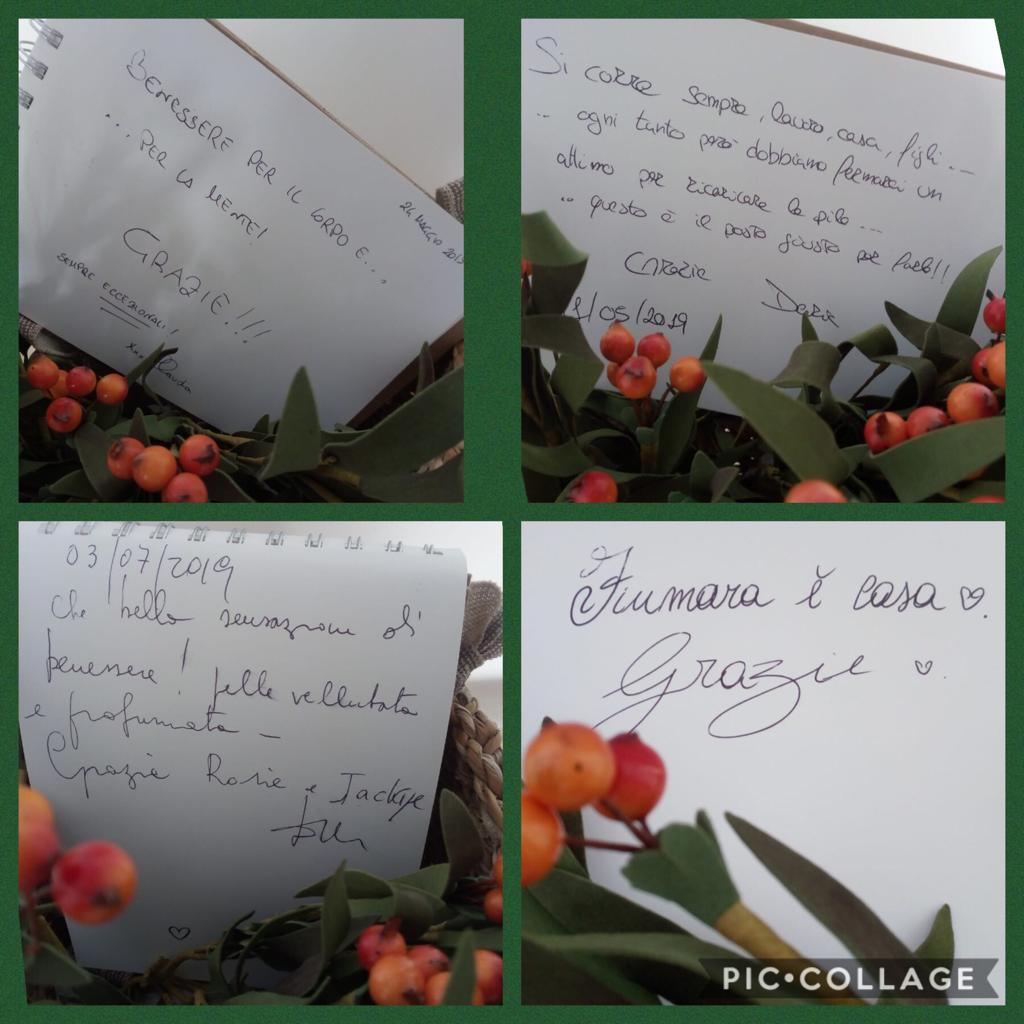 BENESSERE PER IL CORPO E...
... PER LA MENTE!
24 MAGGIO 2019
GRAZIE!!!
SEMPRE ECCEZIONALI!
Claudia
Si corre sempre, lavoro, casa, figli...
.. ogni tanto però dobbiamo fermarci un
attimo per ricaricare le pile...
.. questo è il posto giusto per farlo!!
Grazie
/05/2019
03/07/2019
Che bella sensazione di
benessere! pelle vellutata
e profumata -
Grazie Rosie e Jackye
Fiumara è casa ♡.
Grazie ♡.
PIC•COLLAGE